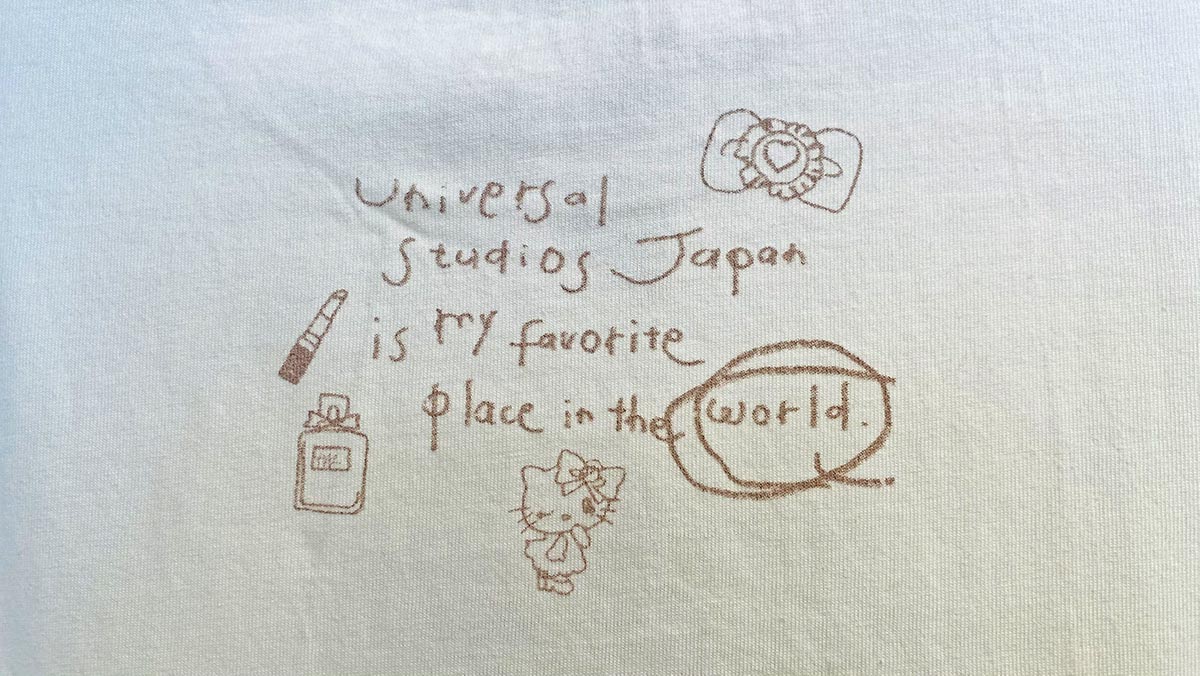 Universal
Studios Japan
is my favorite
place in the world.